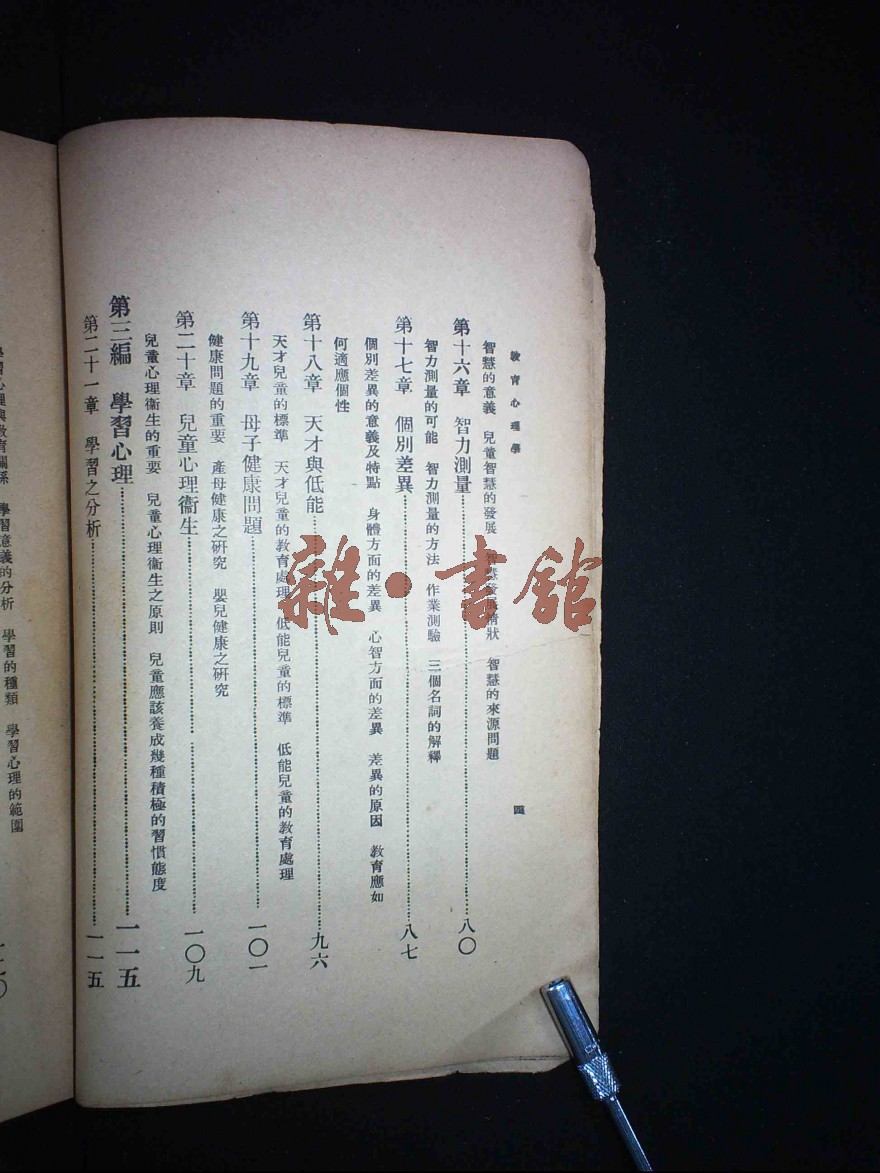 教育心理學
四
智慧的意義　兒童智慧的發展　智慧發展情狀　智慧的來源問題
第十六章　智力測量……八〇
智力測量的可能　智力測量的方法　作業測驗　三個名詞的解釋
第十七章　個別差異……八七
個別差異的意義及特點　身體方面的差異　心智方面的差異　差異的原因　教育應如
何適應個性
第十八章　天才與低能……九六
天才兒童的標準　天才兒童的教育處理　低能兒童的標準　低能兒童的教育處理
第十九章　母子健康問題……一〇一
健康問題的重要　產母健康之研究　嬰兒健康之研究
第二十章　兒童心理衞生……一〇九
兒童心理衞生的重要　兒童心理衞生之原則　兒童應該養成幾種積極的習慣態度
第三編　學習心理……一一五
第二十一章　學習之分析……一一五
學習心理與教育關係　學習意義的分析　學習的種類　學習心理的範圍
雜·書館